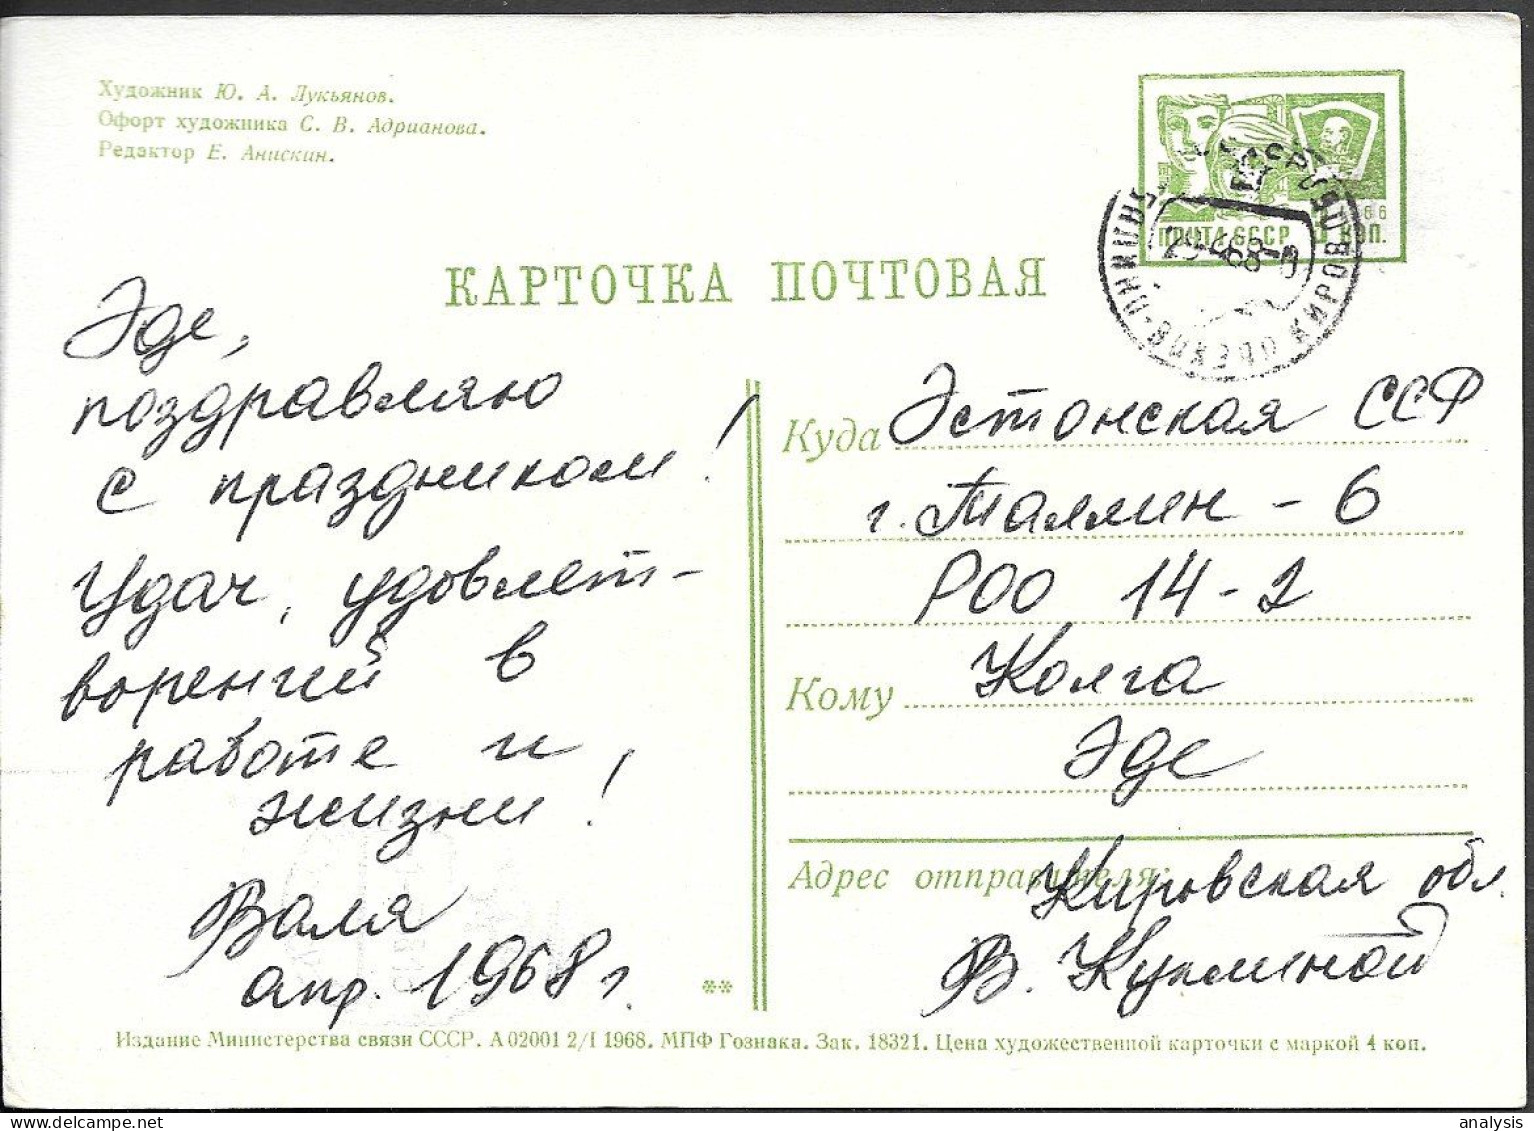 Художник Ю. А. Лукьянов.
Офорт художника С. В. Адрианова.
Редактор Е. Анискин.
ПОЧТА СССР
КОП.
КАРТОЧКА ПОЧТОВАЯ
Эде,
поздравляю
с праздником!
Удач, удовлет-
ворений в
работе и
жизни!
Валя
апр. 1968 г.
**
Куда Эстонская ССР
г. Таллин - 6
РОО 14-2
Кому Колга
Эде
Адрес отправителя: Кировская обл.
В.
Издание Министерства связи СССР. А 02001 2/I 1968. МПФ Гознака. Зак. 18321. Цена художественной карточки с маркой 4 коп.
analysis